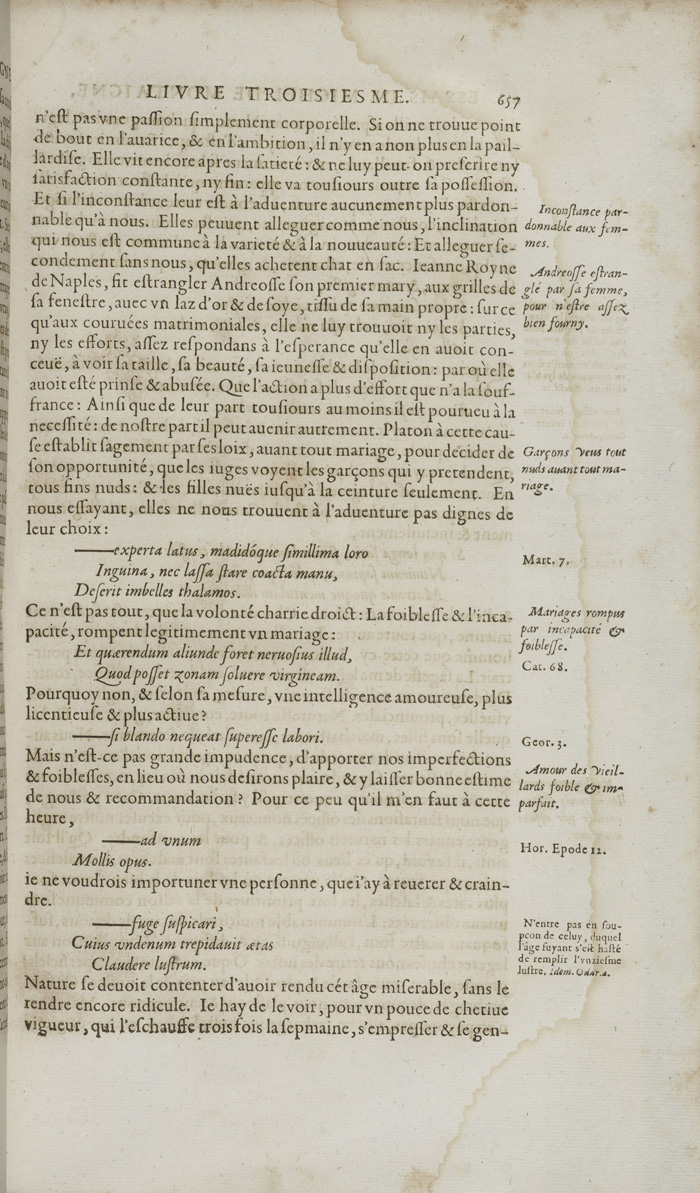 LIVRE TROISIESME. 657
n'eſt pas vne paſſion ſimplement corporelle. Si on ne trouue point
de bout en l'auarice, & en l'ambition, il n'y en a non plus en la pail-
lardiſe. Elle vit encore apres la ſatieté: & ne luy peut-on preſcrire ny
ſatisfaction conſtante, ny fin: elle va touſiours outre ſa poſſeſſion.
Et ſi l'inconſtance leur eſt à l'aduenture aucunement plus pardon-
nable qu'à nous. Elles peuuent alleguer comme nous, l'inclination
qui nous eſt commune à la varieté & à la nouueauté: Et alleguer ſe-
condement ſans nous, qu'elles achetent chat en ſac. Ieanne Royne
de Naples, fit eſtrangler Andreoſſe ſon premier mary, aux grilles de
ſa feneſtre, auec vn laz d'or & de ſoye, tiſſu de ſa main propre: ſur ce
qu'aux couruées matrimoniales, elle ne luy trouuoit ny les parties,
ny les efforts, aſſez reſpondans à l'eſperance qu'elle en auoit con-
ceuë, à voir ſa taille, ſa beauté, ſa ieuneſſe & diſpoſition: par où elle
auoit eſté prinſe & abuſée. Que l'action a plus d'effort que n'a la ſouf-
france: Ainſi que de leur part touſiours au moins il eſt pourueu à la
neceſſité: de noſtre part il peut auenir autrement. Platon à cette cau-
ſe eſtablit ſagement par ſes loix, auant tout mariage, pour decider de
ſon opportunité, que les iuges voyent les garçons qui y pretendent,
tous fins nuds: & les filles nuës iuſqu'à la ceinture ſeulement. En
nous eſſayant, elles ne nous trouuent à l'aduenture pas dignes de
leur choix:
——experta latus, madidóque ſimillima loro
Inguina, nec laſſa ſtare coacta manu,
Deſerit imbelles thalamos.
Ce n'eſt pas tout, que la volonté charrie droict: La foibleſſe & l'inca-
pacité, rompent legitimement vn mariage:
Et quærendum aliunde foret neruoſius illud,
Quod poſſet zonam ſoluere virgineam.
Pourquoy non, & ſelon ſa meſure, vne intelligence amoureuſe, plus
licentieuſe & plus actiue?
——ſi blando nequeat ſupereſſe labori.
Mais n'eſt-ce pas grande impudence, d'apporter nos imperfections
& foibleſſes, en lieu où nous deſirons plaire, & y laiſſer bonne eſtime
de nous & recommandation? Pour ce peu qu'il m'en faut à cette
heure,
——ad vnum
Mollis opus.
ie ne voudrois importuner vne perſonne, que i'ay à reuerer & crain-
dre.
——fuge ſuſpicari,
Cuius vndenum trepidauit ætas
Claudere luſtrum.
Nature ſe deuoit contenter d'auoir rendu cét âge miſerable, ſans le
rendre encore ridicule. Ie hay de le voir, pour vn pouce de chetiue
vigueur, qui l'eſchauffe trois fois la ſepmaine, s'empreſſer & ſe gen-
Inconſtance par-
donnable aux fem-
mes.
Andreoſſe eſtran-
glé par ſa femme,
pour n'eſtre aſſez
bien fourny.
Garçons veus tout
nuds auant tout ma-
riage.
Mart. 7.
Mariages rompus
par incapacité &
foibleſſe.
Cat. 68.
Geor. 3.
Amour des vieil-
lards foible & im-
parfait.
Hor. Epode 12.
N'entre pas en ſou-
pçon de celuy, duquel
l'âge fuyant s'eſt haſté
de remplir l'vnzieſme
luſtre. Idem. Odar. 2.